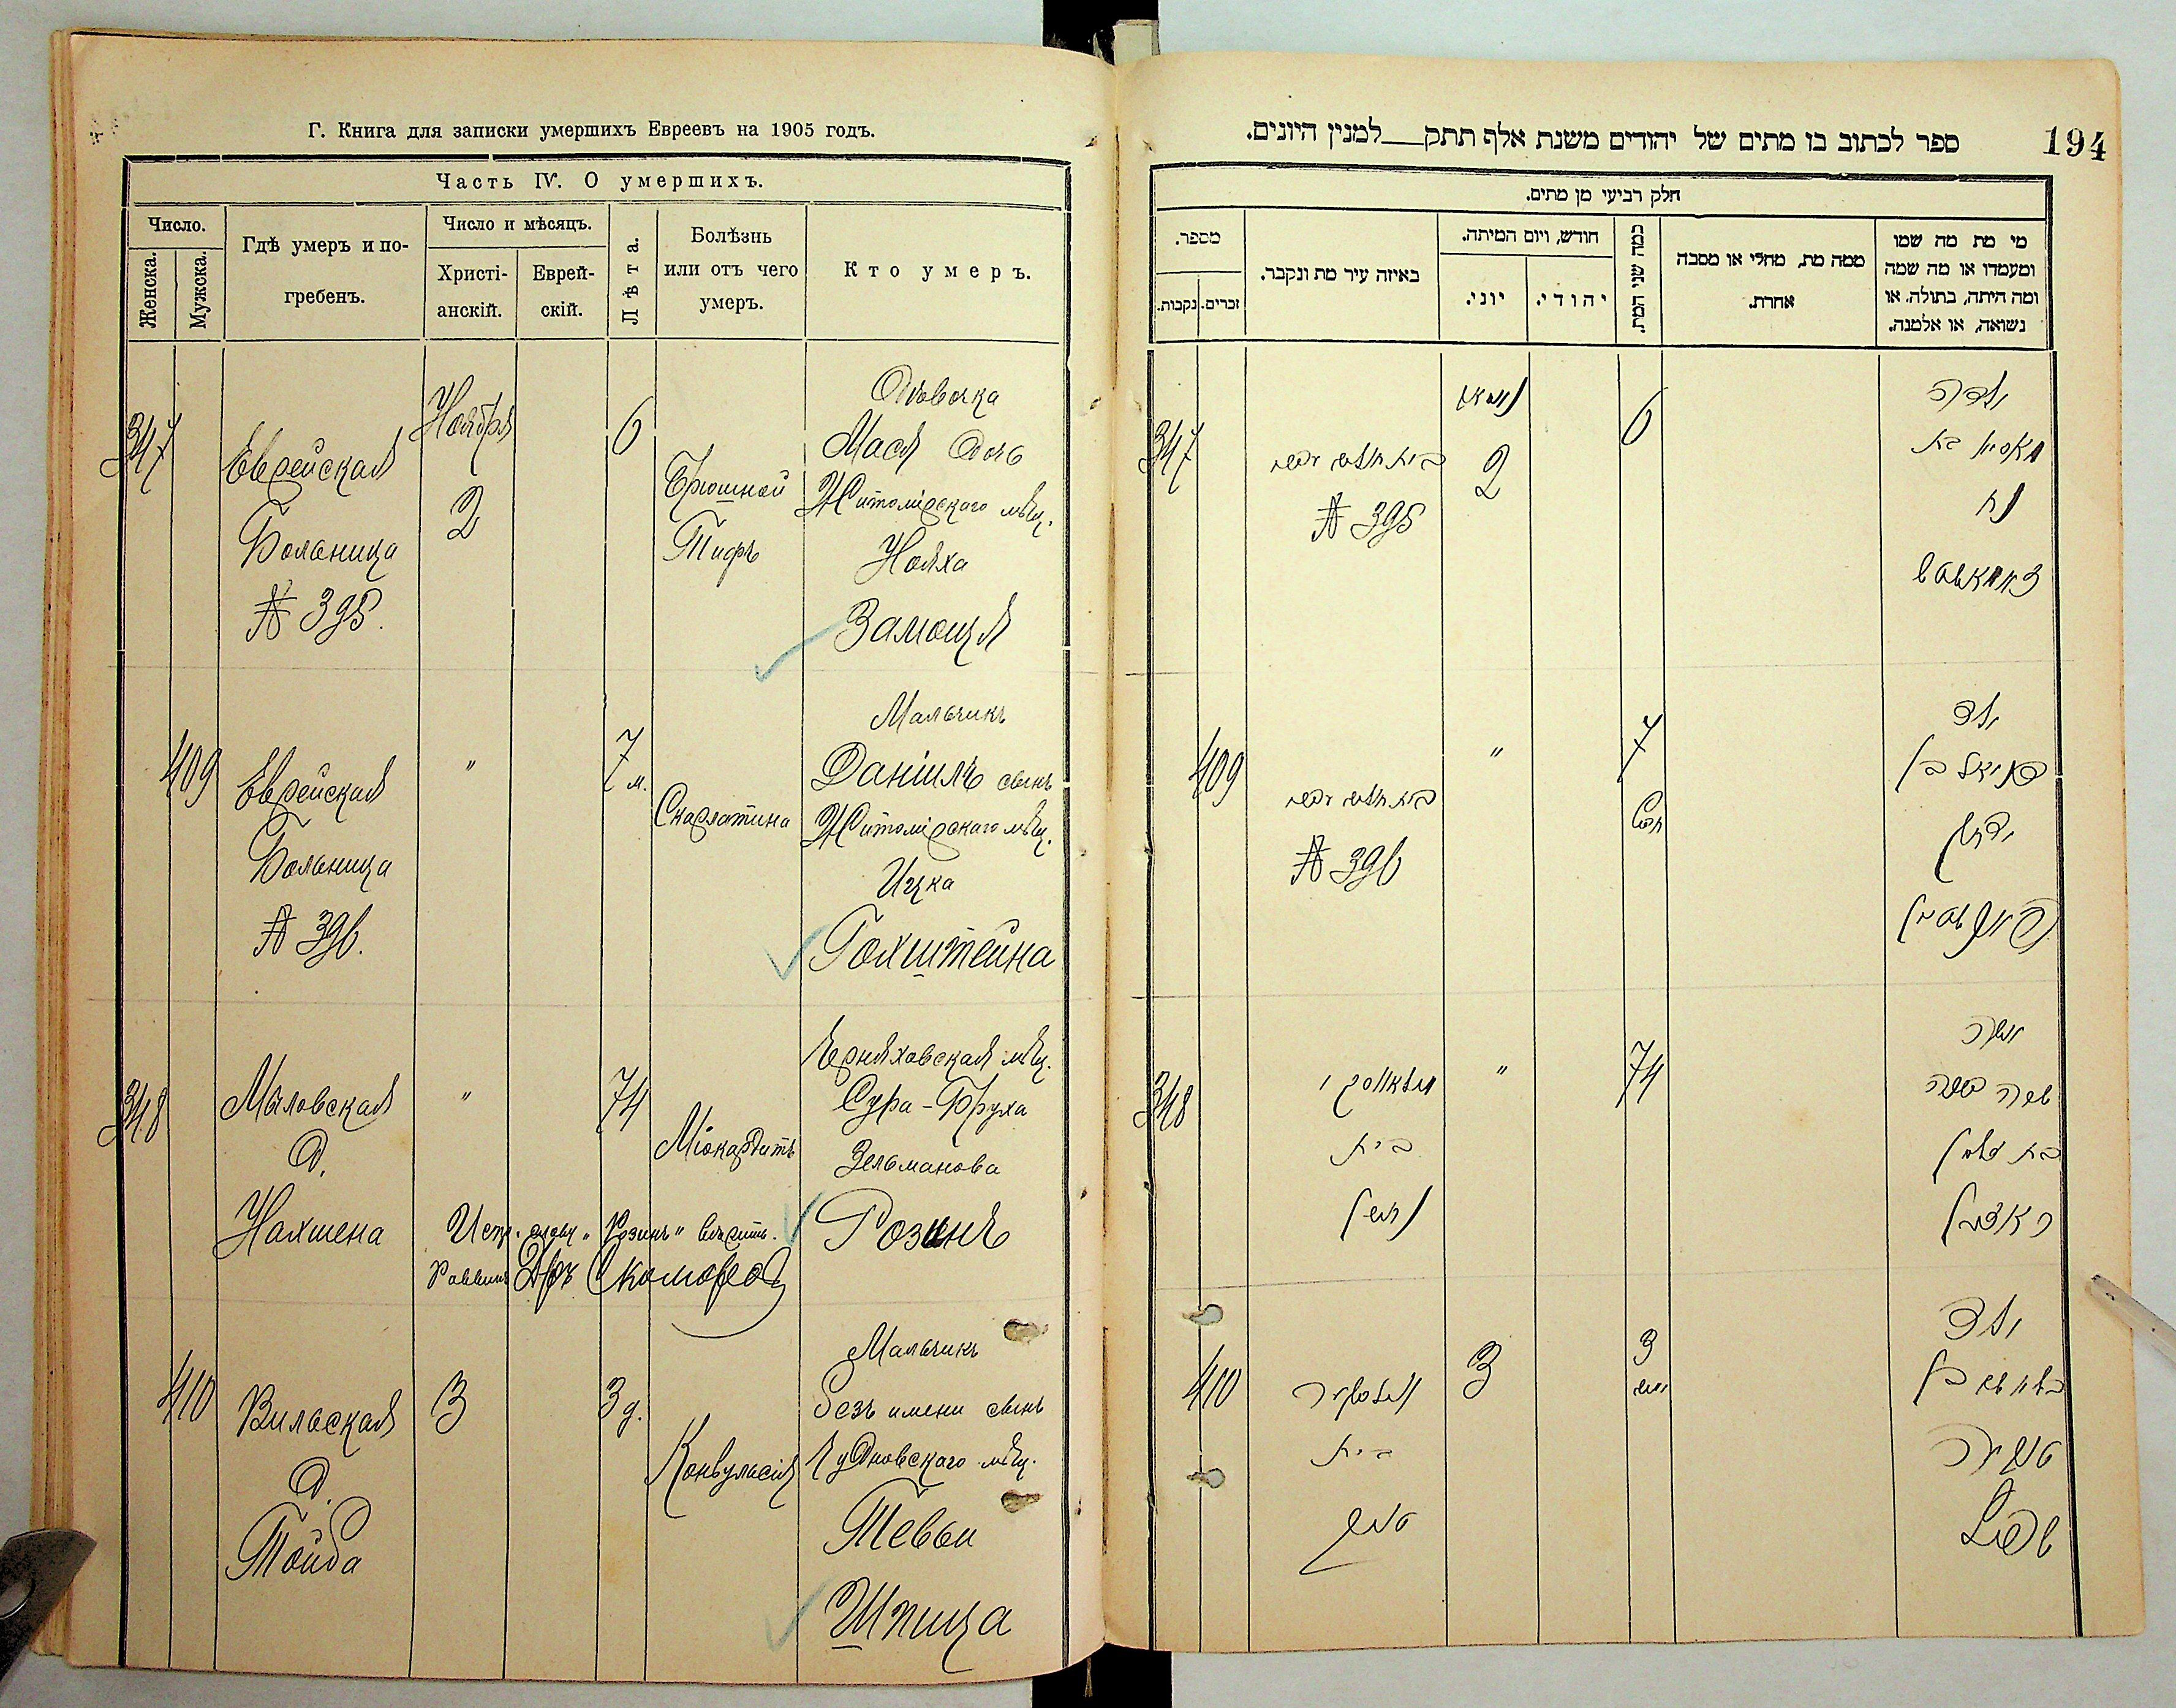 Г. Книга для записки умершихъ Евреевъ на 1905 годъ.
Часть IV. О умершихъ.
Число.
Женска.
Мужска.
Гдѣ умеръ и по-
гребенъ.
Число и мѣсяцъ.
Христі-
анскій.
Еврей-
скій.
Лѣта.
Болѣзнь
или отъ чего
умеръ.
Кто умеръ.
347
Еврейская
Больница
№ 395.
Ноября
2
6
Брюшной
Тифъ
Дѣвочка
Мася дочь
Житомірскаго мѣщ.
Нояха
Замощя
409
Еврейская
Больница
№ 396.
"
7 м.
Скарлатина
Мальчикъ
Даніилъ сынъ
Житомірскаго мѣщ.
Ицка
Голштейна
348
Маловская
д.
Нахмена
"
74
Міокардитъ
Черняховская мѣщ.
Сура-Фруха
Зельманова
Розинъ
"Розинъ"
Раввинъ Скоморов
410
Вильская
д.
Тойба
3
3 д.
Конвульсія
Мальчикъ
безъ имени сынъ
Чудновскаго мѣщ.
Тевьи
Шпица
194
ספר לכתוב בו מתים של יהודים משנת אלף תתק למנין היונים.
חלק רביעי מן מתים.
מספר.
נקבות.
זכרים.
באיזה עיר מת ונקבר.
חודש, ויום המיתה.
יוני.
יהודי.
כמה שני המת.
ממה מת, מחלי או מסבה
אחרת.
מי מת מה שמו
ומעמדו או מה שמה
ומה היתה, בתולה, או
נשואה, או אלמנה.
347
№ 395
2
6
ילדה
בת
נח
409
№ 396
"
7
חדש
ילד
דניאל בן
יצחק
348
בית
"
74
אשה
שרה
בת זלמן
ראזין
410
בית
3
3
ילד
בן
טוביה
שפיץ